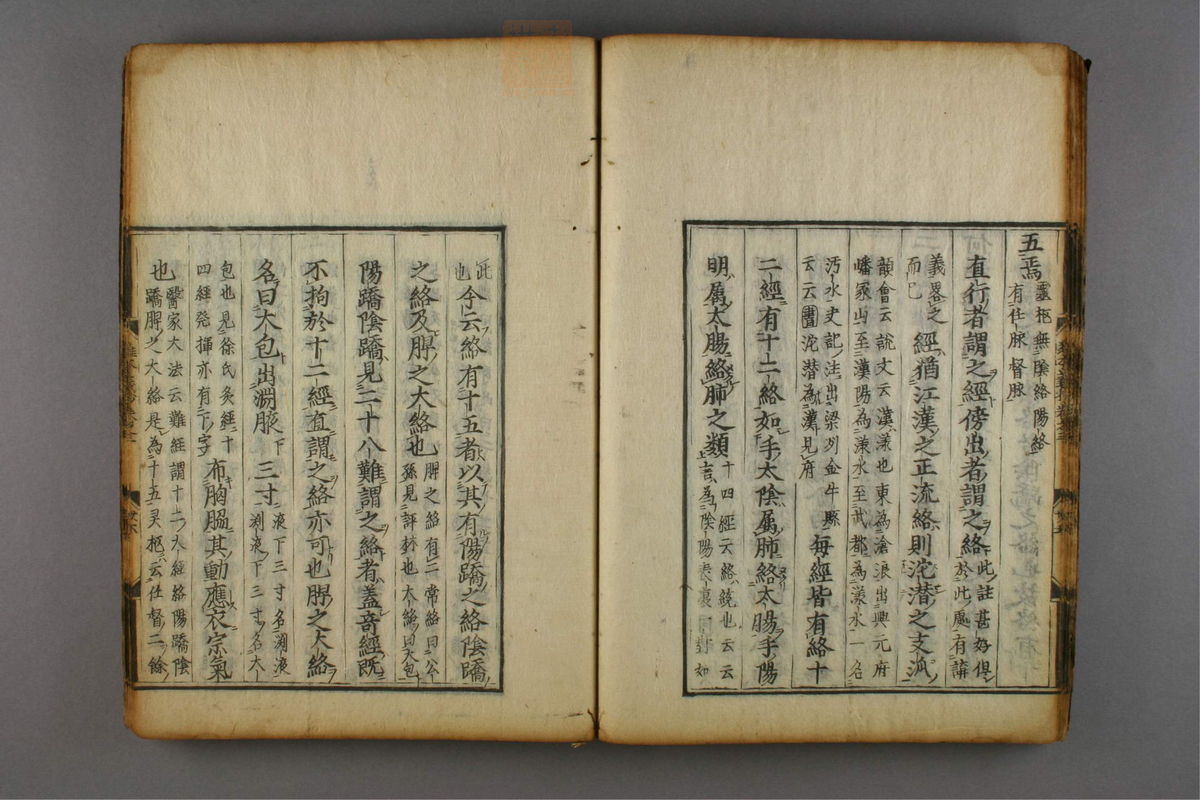 五焉 靈枢無陰絡陽絡
有任脉督脉
直行者謂之經傍出者謂之絡 此註甚好但
於此處有講
義畧之
而已
經猶江漢之正流絡則沱潜之支派
韻會云說文云漢漾也東為滄浪出興元府
嶓冢山至漢陽為漾水至武都為漾水一名
沔水史記注出梁列金牛縣
云云沱潜為漢見府
每經皆有絡十
二經有十二絡如手太陰属肺絡太腸手陽
明属太腸絡肺之類 十四經云絡繞也云云
言為陰陽表裏
此
也
今云絡有十五者以其有陽蹻之絡陰蹻
之絡及脾之大絡也 脾之絡有二常絡曰公
孫見評林也大絡曰大包
陽蹻陰蹻見二十八難謂之絡者蓋奇經既
不拘於十二經直謂之絡亦可也脾之大絡
名曰大包出淵腋下三寸 液下三寸名渊液
渕液下三寸名大
包也見徐氏灸經十
四經発揮亦有下字
布胸脇其動應衣宗氣
也 醫家大法云難經謂十二大經絡陽蹻陰
蹻脾之大絡是為十五灵枢云任督二餘